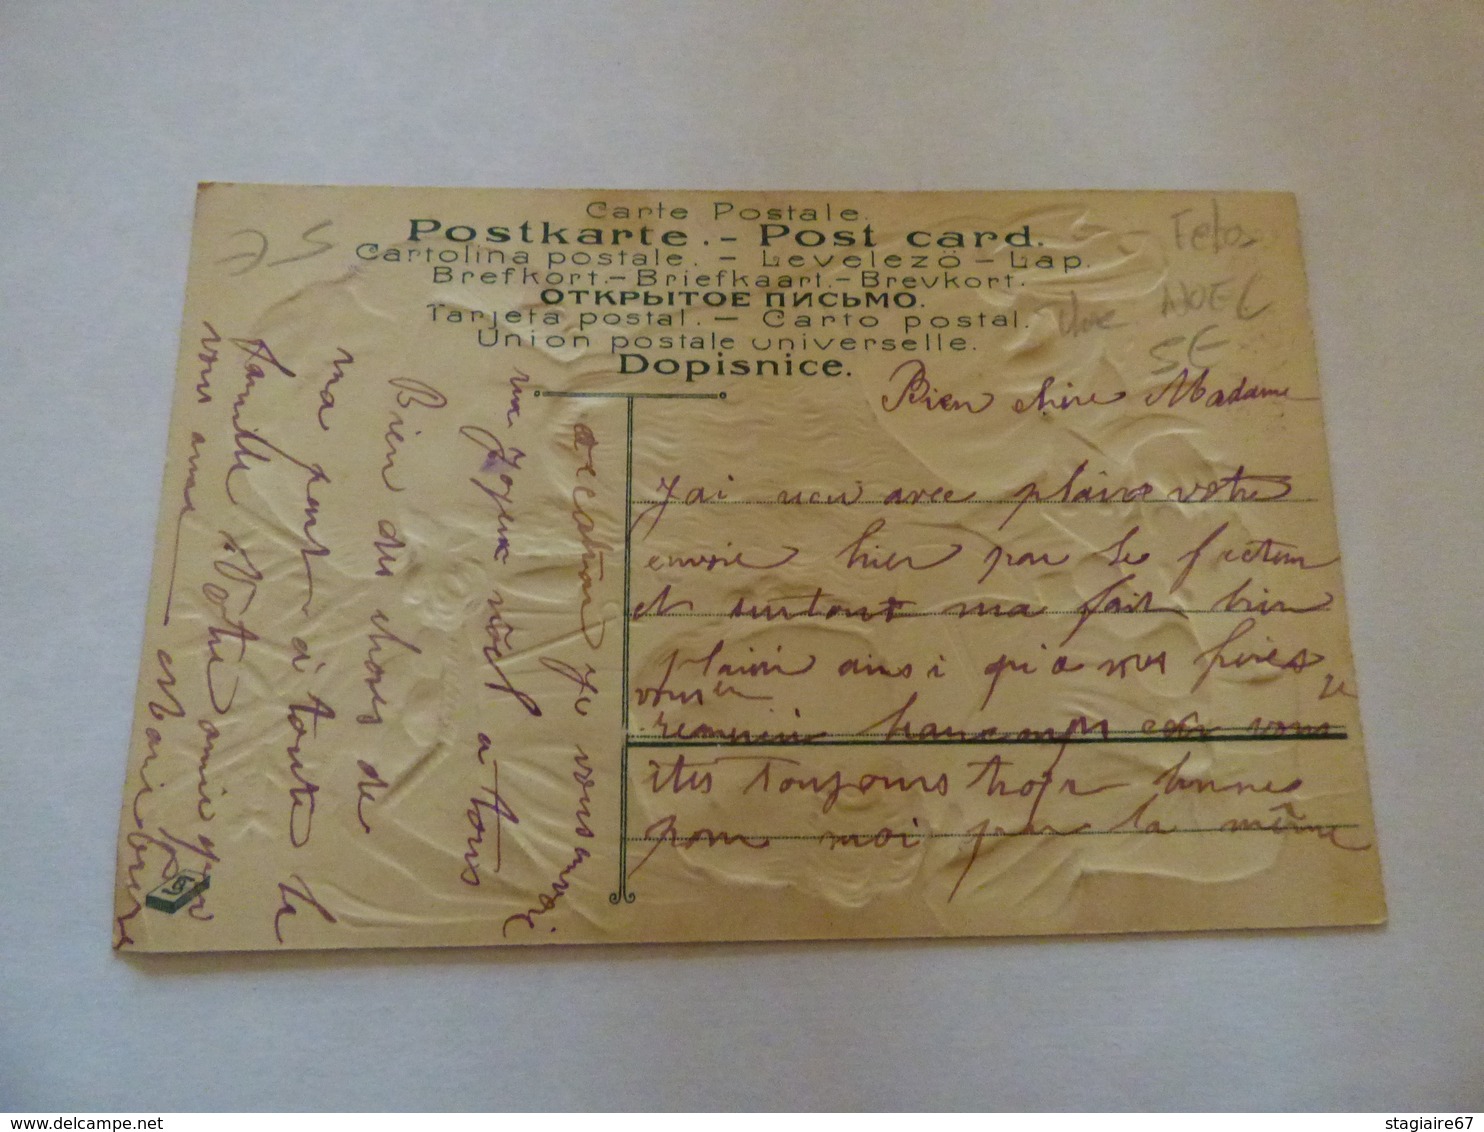 Carte Postale.
Postkarte. - Post card.
Cartolina postale. - Levelezö - Lap.
Brefkort. - Briefkaart. - Brevkort.
ОТКРЫТОЕ ПИСЬМО.
Tarjeta postal. - Carto postal.
Union postale universelle.
Dopisnice.
NOEL
5E
Bien chère Madame
J'ai reçu avec plaire votre
envoie hier par le facteur
et surtout ma fait bien
plaisir ainsi qi a mes frères
vous en
remerci beaucoup car vous
êtes toujours trop bonnes
pour moi par la même
occation je vous envoi
un joyeux noël a tous
Bien des choses de
ma part à toute la
famille Votre amie qui
vous aime
stagiaire67